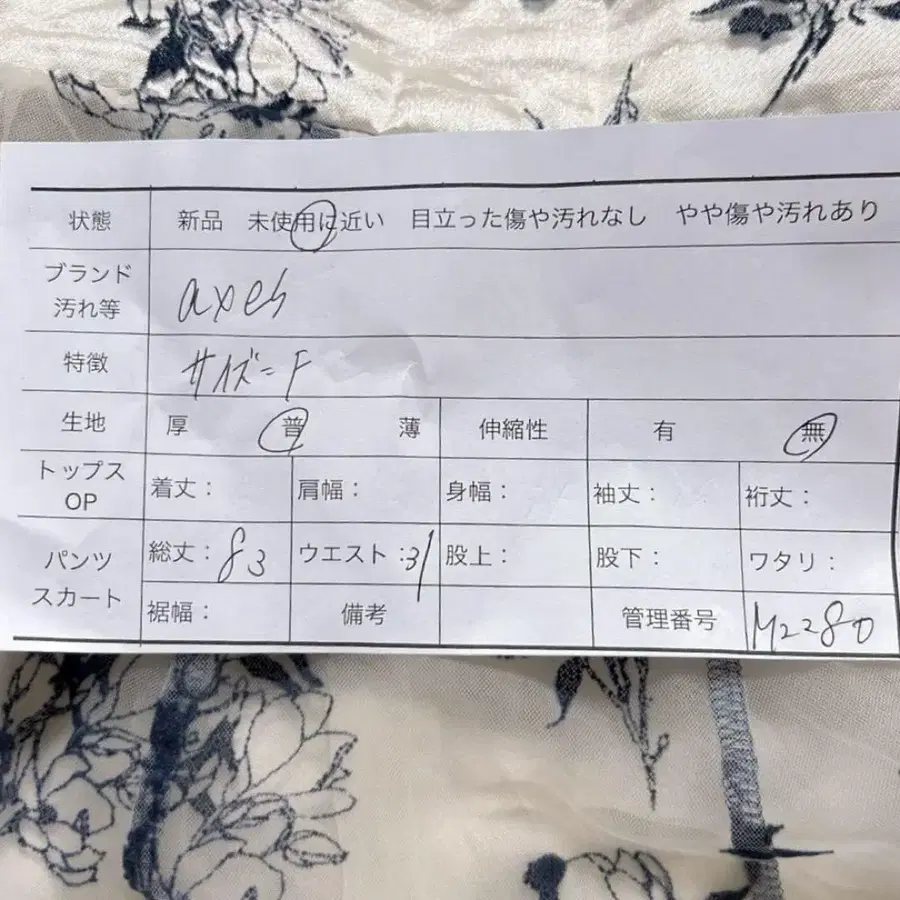 状態 新品 未使用に近い 目立った傷や汚れなし やや傷や汚れあり
ブランド
汚れ等 axes
特徴 サイズ=F
生地 厚 普 薄 伸縮性 有 無
トップス
OP 着丈: 肩幅: 身幅: 袖丈: 裄丈:
パンツ
スカート 総丈:83 ウエスト:31 股上: 股下: ワタリ:
裾幅: 備考 管理番号 M2280